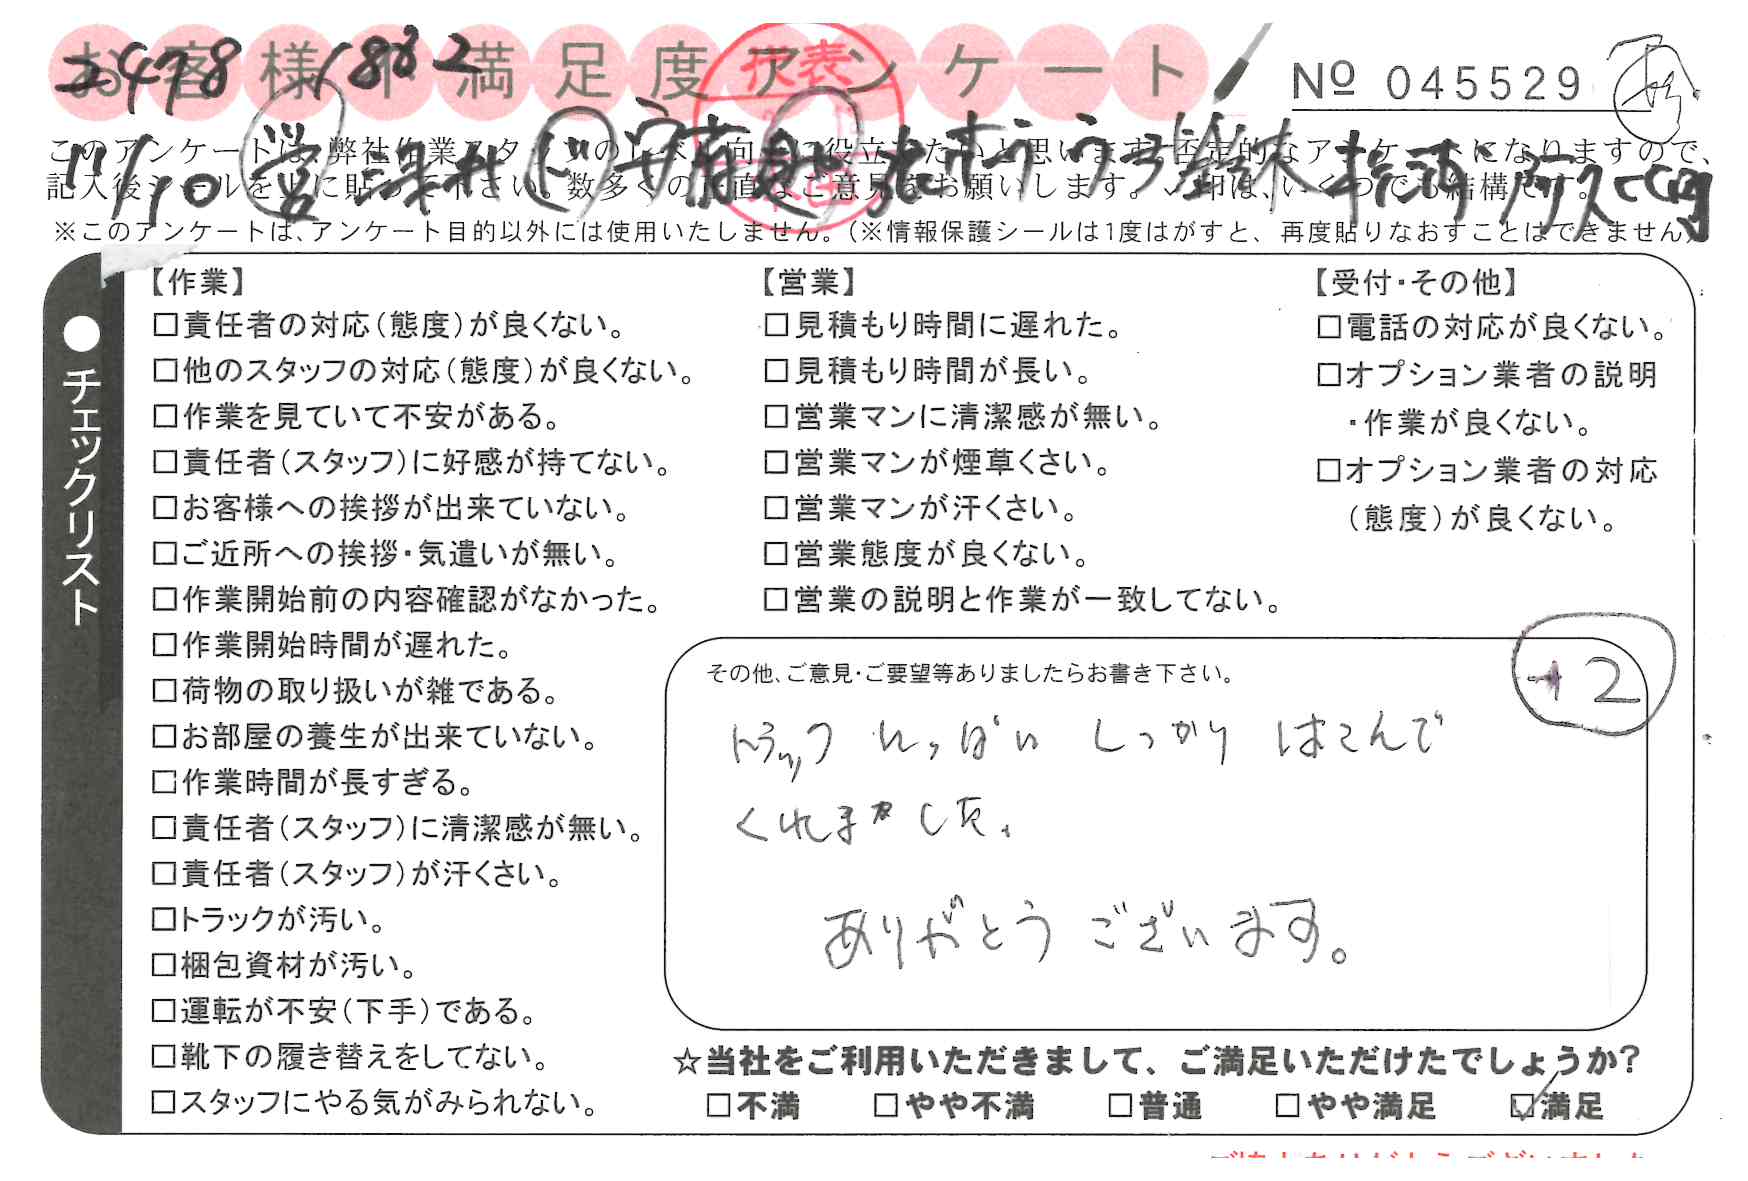 お客様不満足度アンケート
2478 1882
№ 045529
このアンケートは、弊社作業スタッフのレベル向上に役立てたいと思います。否定的なアンケートになりますので、
記入後シールを上に貼って下さい。数多くの正直なご意見をお願いします。✓印は、いくつでも結構です。
11/10
※このアンケートは、アンケート目的以外には使用いたしません。(※情報保護シールは1度はがすと、再度貼りなおすことはできません)
●チェックリスト
【作業】
□責任者の対応(態度)が良くない。
□他のスタッフの対応(態度)が良くない。
□作業を見ていて不安がある。
□責任者(スタッフ)に好感が持てない。
□お客様への挨拶が出来ていない。
□ご近所への挨拶・気遣いが無い。
□作業開始前の内容確認がなかった。
□作業開始時間が遅れた。
□荷物の取り扱いが雑である。
□お部屋の養生が出来ていない。
□作業時間が長すぎる。
□責任者(スタッフ)に清潔感が無い。
□責任者(スタッフ)が汗くさい。
□トラックが汚い。
□梱包資材が汚い。
□運転が不安(下手)である。
□靴下の履き替えをしてない。
□スタッフにやる気がみられない。
【営業】
□見積もり時間に遅れた。
□見積もり時間が長い。
□営業マンに清潔感が無い。
□営業マンが煙草くさい。
□営業マンが汗くさい。
□営業態度が良くない。
□営業の説明と作業が一致してない。
【受付・その他】
□電話の対応が良くない。
□オプション業者の説明
・作業が良くない。
□オプション業者の対応
(態度)が良くない。
その他、ご意見・ご要望等ありましたらお書き下さい。
+2
トラック いっぱい しっかり はこんで
くれました。
ありがとう ございます。
☆当社をご利用いただきまして、ご満足いただけたでしょうか?
□不満 □やや不満 □普通 □やや満足 ☑満足